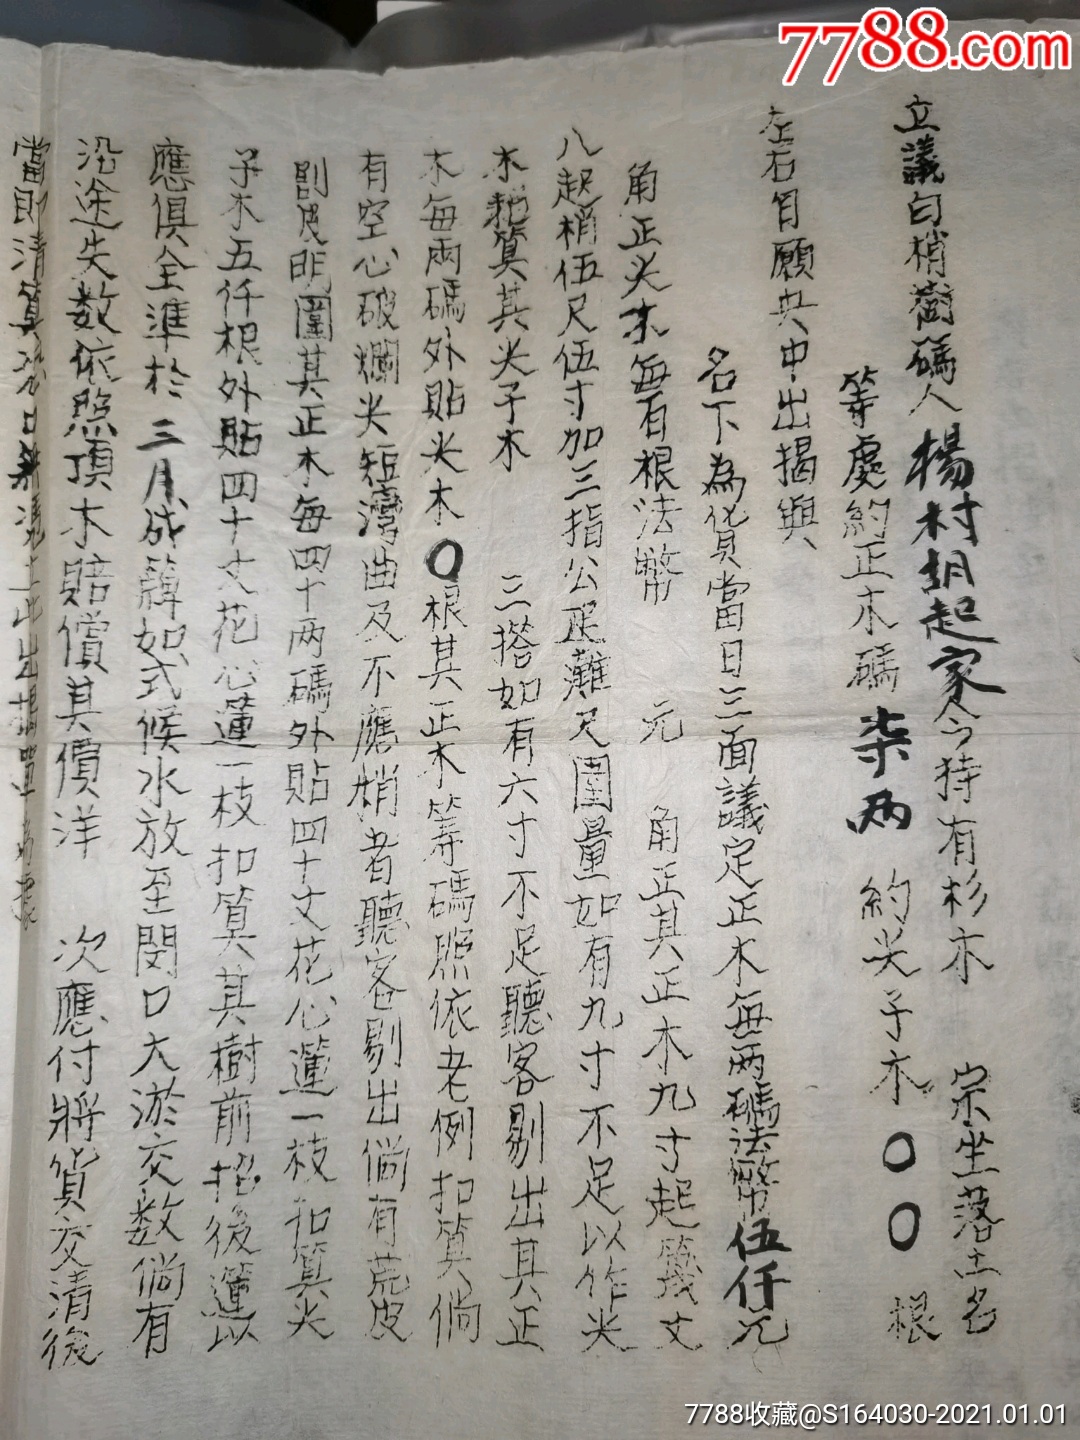 7788.com
立議白梢樹碼人楊村胡起家今特有杉木 宗坐落土名
等處約正木碼柒两 約尖子木〇〇根
左右自願央中出揭與
名下為貨當日三面議定正木每两碼法幣伍仟元
角正尖木每百根法幣 元 角正其正木九寸起篾丈
八起梢伍尺伍寸加三指公疋灘尺圍量如有九寸不足以作尖
木 算其尖子木 三搭如有六寸不足聽客剔出其正
木每兩碼外貼尖木〇根其正木筹碼照依老例扣算倘
有空心破爛尖短灣曲及不應梢者聽客剔出倘有荒皮
剖皮明圍其正木每四十两碼外貼四十丈花心蓮一枝扣算尖
子木五仟根外貼四十丈花心蓮一枝扣算其樹前招後運以
應俱全準於三月成 如式候水放至閔口大淤交数倘有
沿途失数依照頂木賠償其價洋 次應付將貨交清後
當即清算 口 憑 立此出揭單为據
7788收藏@S164030-2021.01.01